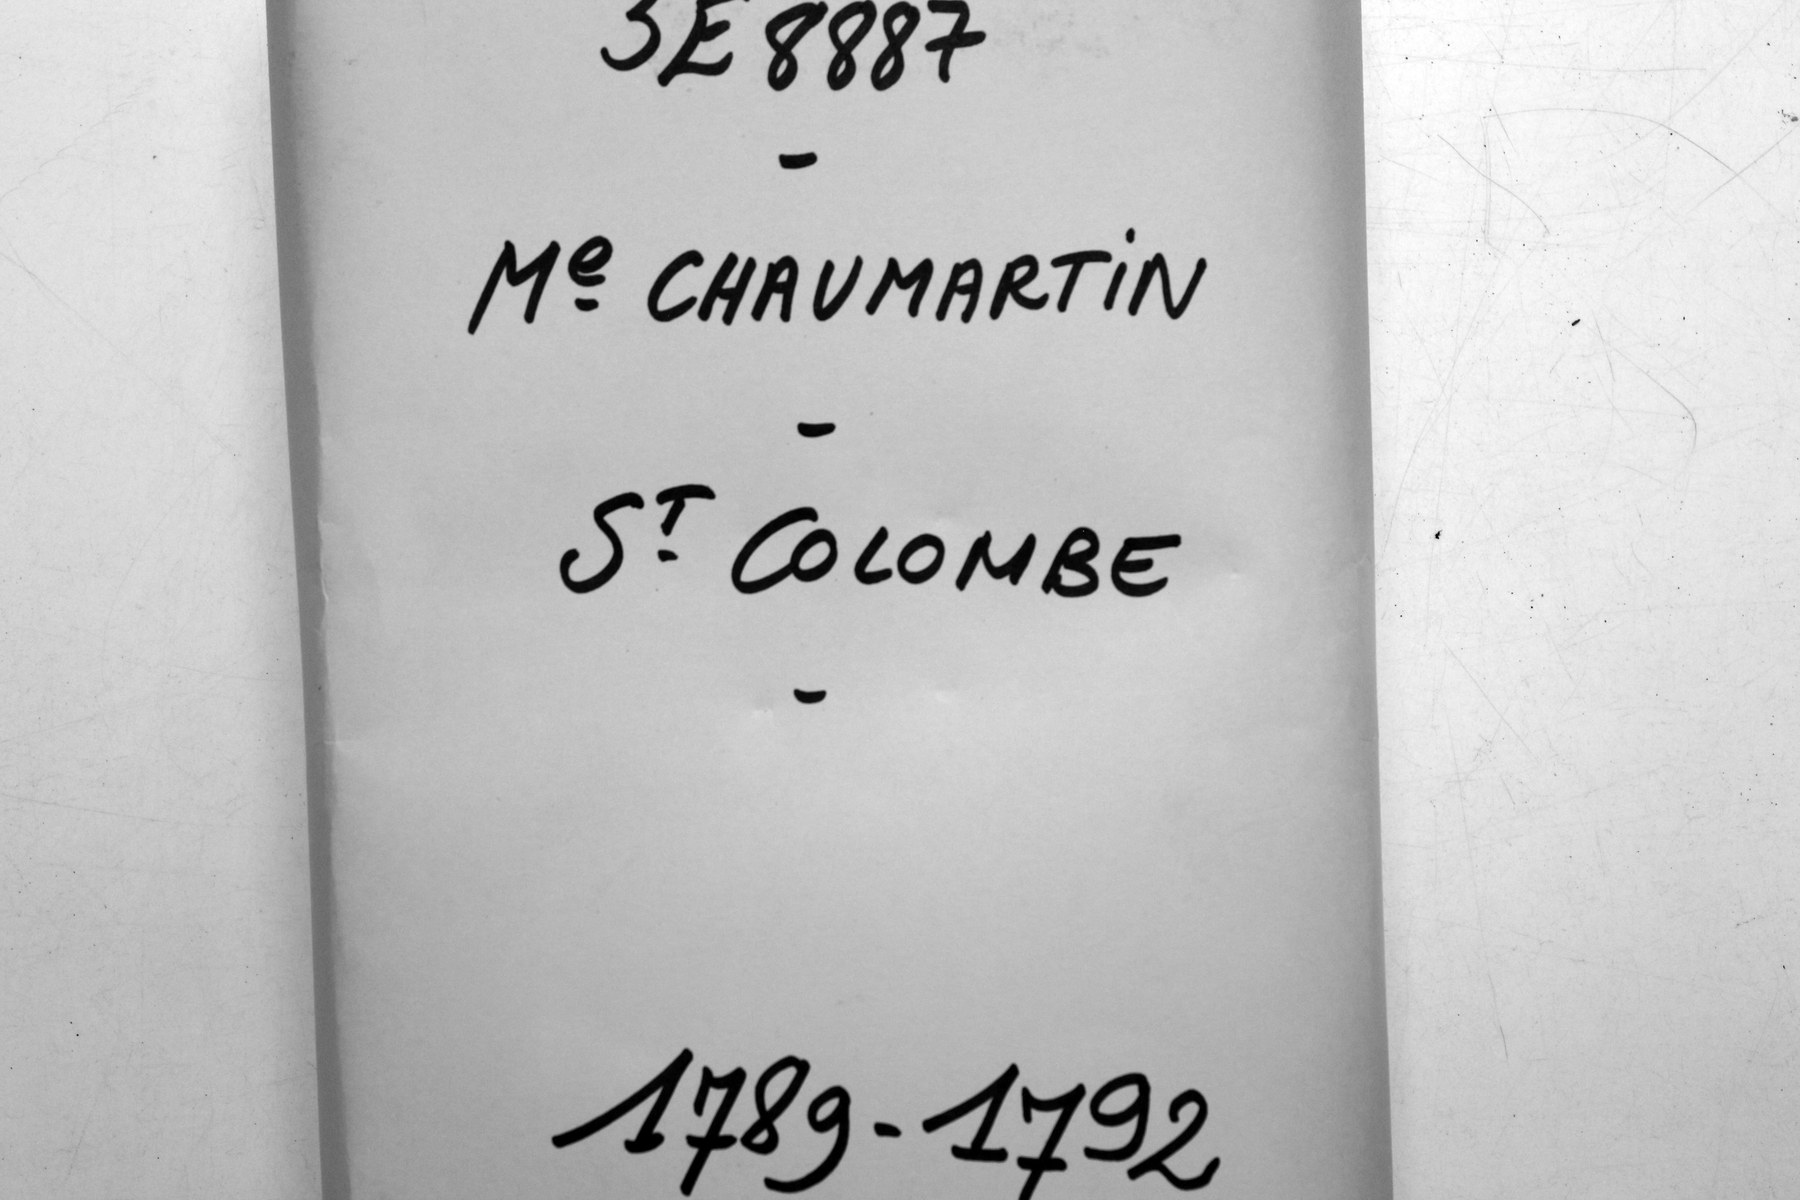 3E 8887
-
Mᵉ CHAUMARTIN
-
Sᵀ COLOMBE
-
1789-1792